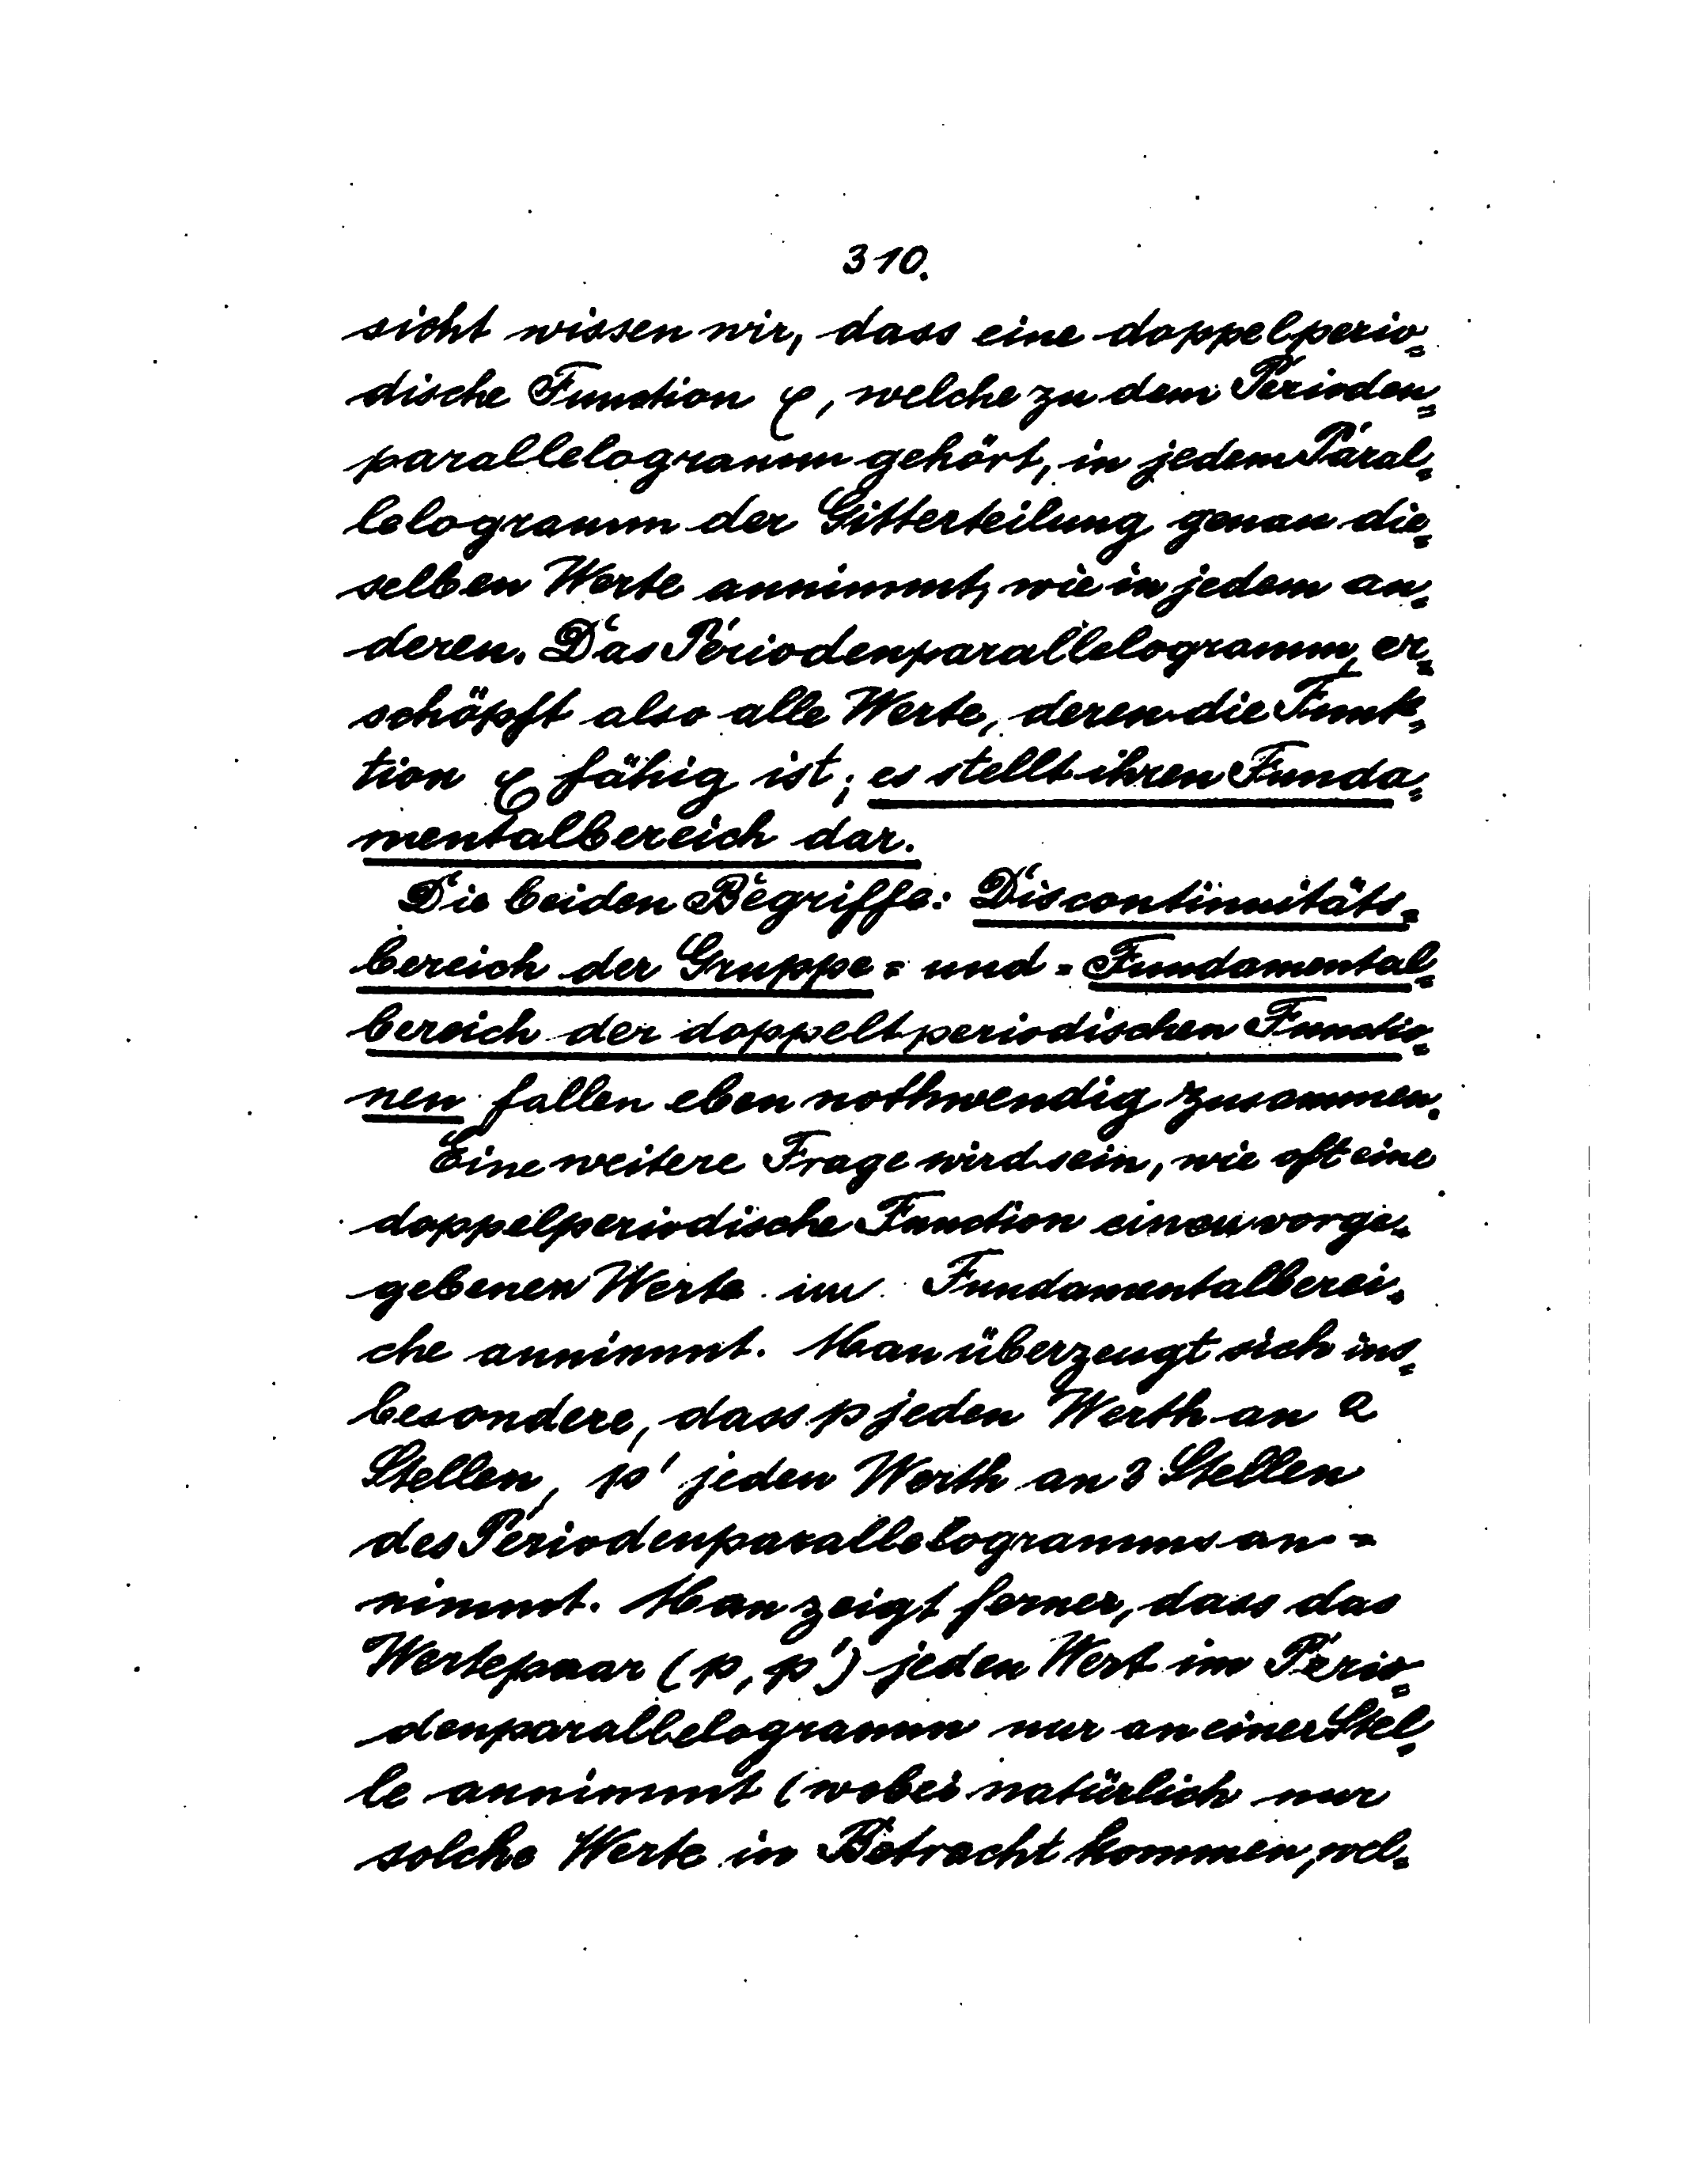 310.
sicht wissen wir, dass eine doppelperio=
dische Function φ, welche zu dem Perioden=
parallelogramm gehört, in jedem Paral=
lelogramm der Gitterteilung genau die=
selben Werte annimmt, wie in jedem an=
deren. Das Periodenparallelogramm er=
schöpft also alle Werte, deren die Funk=
tion φ fähig ist; es stellt ihren Funda=
mentalbereich dar.
Die beiden Begriffe: Discontinuitäts=
bereich der Gruppe = und = Fundamental=
bereich der doppeltperiodischen Functio=
nen fallen eben nothwendig zusammen.
Eine weitere Frage wird sein, wie oft eine
doppelperiodische Function einen vorge=
gebenen Werte im Fundamentalberei=
che annimmt. Man überzeugt sich ins=
besondere, dass p jeden Werth an 2
Stellen, p' jeden Werth an 3 Stellen
des Periodenparallelogramms an=
nimmt. Man zeigt ferner, dass das
Wertepaar (p, p') jeden Wert im Perio=
denparallelogramm nur an einer Stel=
le annimmt (wobei natürlich nur
solche Werte in Betracht kommen, wel=